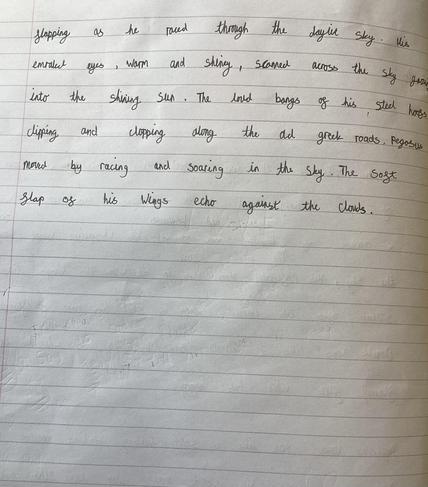 flapping as he raced through the daylit sky. His
emraled eyes, warm and shiney, scanned across the sky
into the shining sun. The loud bangs of his, steel hoofs
clipping and clopping along the old greek roads. Pegasus
moved by racing and soaring in the sky. The soft
flap of his wings echo against the clouds.